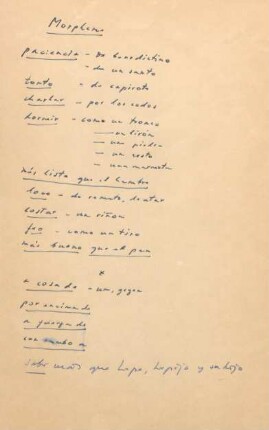 Morfemas
paciencia - de benedictino
- de un santo
tonto - de capirote
charlar - por los codos
dormir - como un tronco
— un lirón
— una piedra
— un cesto
— una marmota
más listo que el hambre
loco - de remate, de atar
costar - un riñón
feo - como un tiro
más bueno que el pan
*
a cosa de -
por encima de
a fuerza de
con rumbo a
saber más que Lepe, Lepijo y su hijo